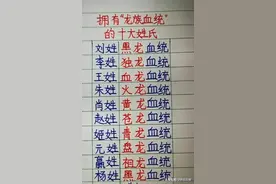 拥有“龙族血统”
的十大姓氏
刘姓黑龙血统
李姓独龙血统
王姓血龙血统
朱姓火龙血统
肖姓黄龙血统
赵姓苍龙血统
姬姓青龙血统
元姓盘龙血统
嬴姓祖龙血统
杨姓黑龙血统